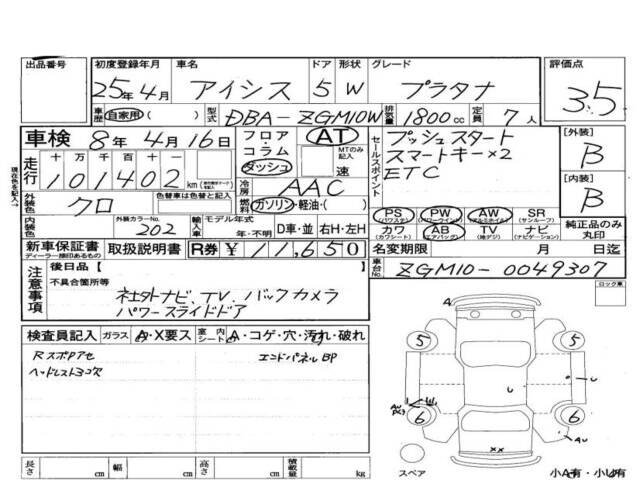 出品番号 初度登録年月 車名 ドア 形状 グレード 評価点
25年4月 アイシス 5 W プラタナ 3.5
車歴 自家用 ( ) 型式 DBA-ZGM10W 排気量 1800cc 定員 7人
車検 8年4月16日 フロア AT セールスポイント プッシュスタート 【外装】
コラム MTのみ記入 スマートキー×2 B
ダッシュ 速 ETC
走行 十万千百十一
101402 km 冷房 AAC 【内装】
現在色を記入→ 外装色 クロ 色替車は元色 燃料 ガソリン・軽油・( ) B
PS PW AW SR
(パワステ) (パワーウインド) (アルミホイル) (サンルーフ)
内装色 外装カラーNo. 202 輸入車 モデル年式 年・不明 D車・並 右H・左H カワ AB TV ナビ 純正品のみ丸印
(カワシート) (エアバッグ) (地デジ) (ナビゲーション)
新車保証書 取扱説明書 R券 ¥11,650 名変期限 月 日迄
ディーラー捺印あるもの
注意事項 後日品【 】 車台No. ZGM10-0049307
不具合箇所等 ロック車
社外ナビ、TV、バックカメラ
パワースライドドア
検査員記入 ガラス A・X要ス 室内シート A・コゲ・穴・汚れ・破れ
Rスポアアセ エンドパネルBP
ヘッドレスト3コ欠
A
5 5
U U
6 6
AU
XX
スペア 小A有・小U有
長さ cm 幅 cm 高さ cm 積載量 kg